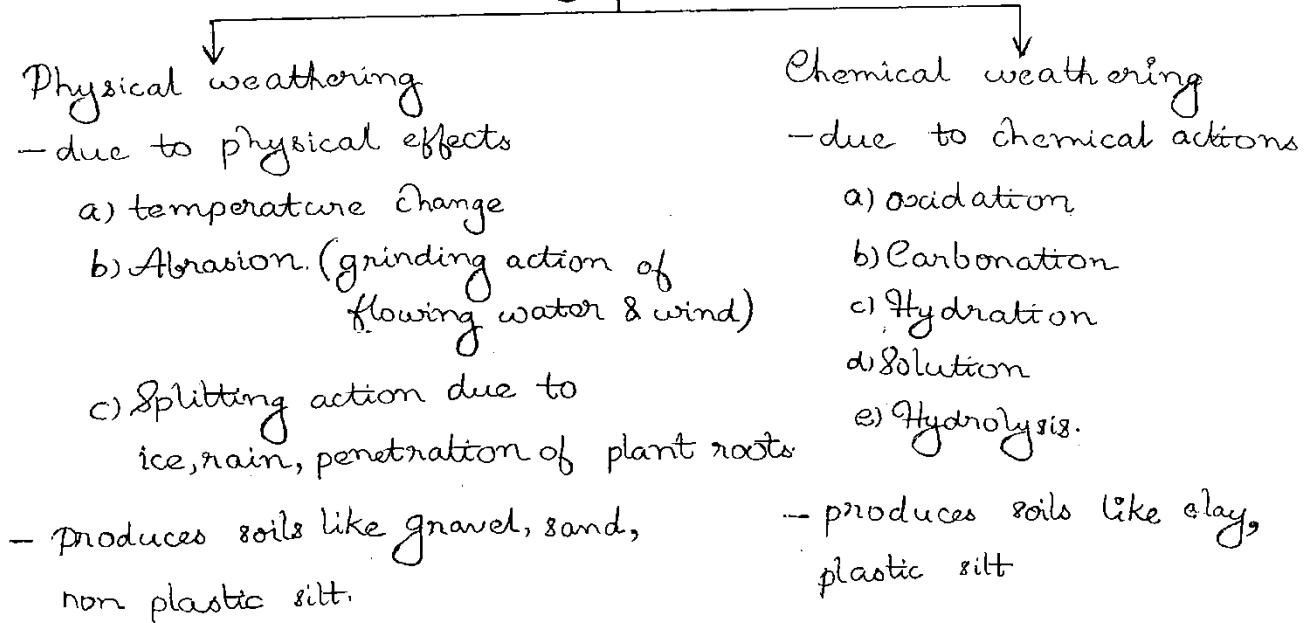 Physical weathering
- due to physical effects
a) temperature change
b) Abrasion. (grinding action of
flowing water & wind)
c) Splitting action due to
ice, rain, penetration of plant roots.
- Produces soils like gravel, sand,
non plastic silt.
Chemical weathering
- due to chemical actions
a) oxidation
b) Carbonation
c) Hydration
d) Solution
e) Hydrolysis.
- produces soils like clay,
plastic silt